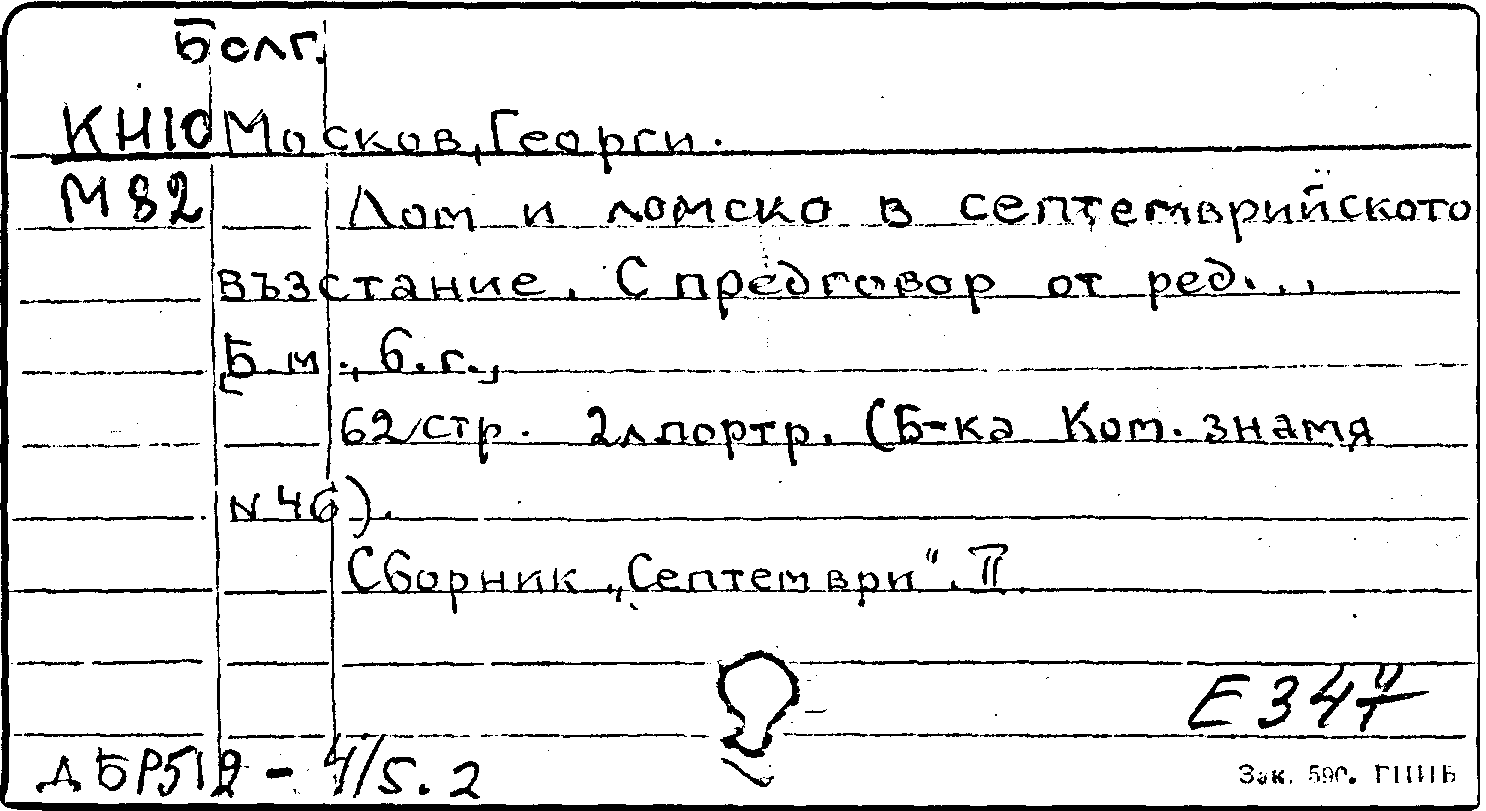 Болг.
КН10 Москов, Георги.
М82 Лом и ломско в септемврийското
възстание. С предговор от ред...
[Б.м., б.г.,
62 стр. 2л портр. (Б-ка Ком. знамя
N 46).
Сборник „Септември". II
Е 347
Зак. 590. ГПИБ